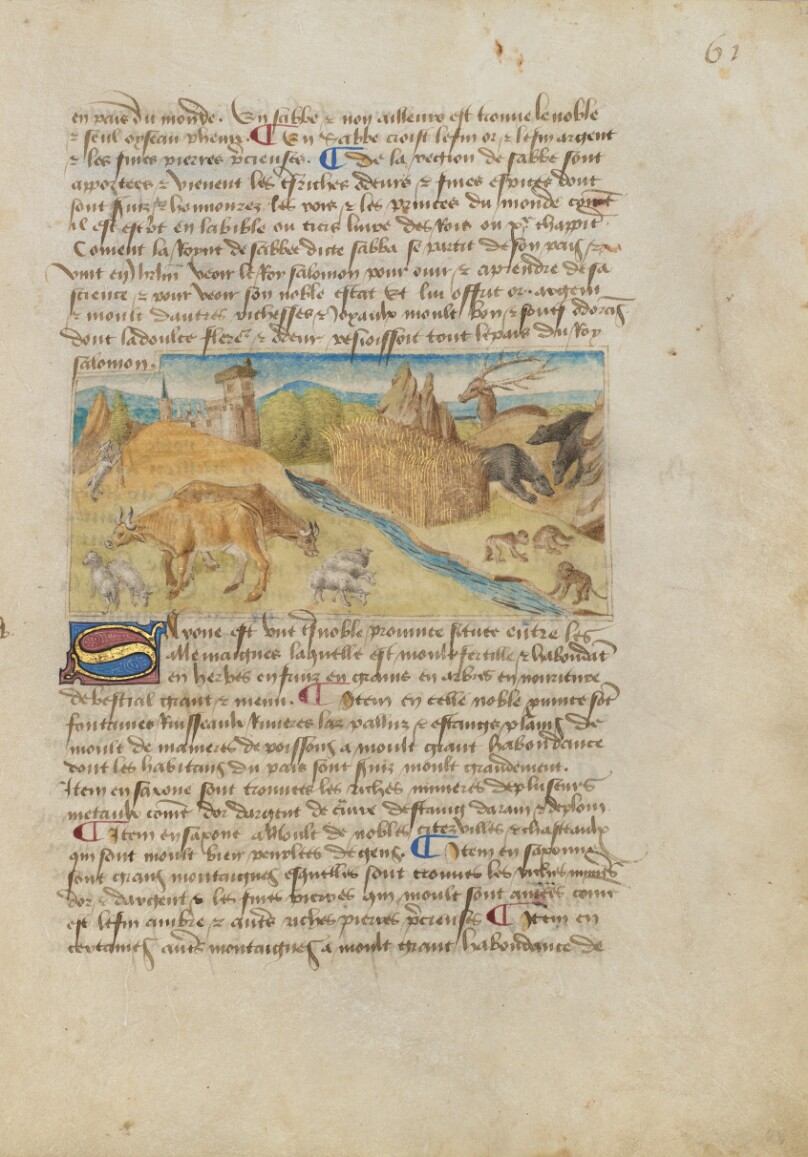 61
en pais du monde. En sabbe & non ailleurs est trouve le noble
& seul oyseau phenix. ¶ En Sabbe croist le fin or, & le fin argent
& les fines pierres p̄cieuses. ¶ De la region de sabbe sont
apportees & vienent les t̄sriches odeurs & fines espices dont
sont & honnourez les rois & les princes du monde com̄e
il est escript en la bible ou tiers livre des Rois ou chappit̄
Coment la Royne de sabbe dicte sabba se partit de son pais, &
vint en veoir le Roy salomon pour ouir & aprendre de sa
science, & pour veoir son noble estat Et lui offrit or. argent
& moult dautres richesses & Joyaulx moult bon, &
dont la doulce & odeur resioissoit tout le pais du Roy
salomon.
Saxone est une t̄snoble province située entre les
allemaignes laquelle est moult fertille & habondāt
en herbes en fruiz en grains en arbres en nouriture
de bestial grant & menu. ¶ Item en celle noble puince sōt
fontaines Ruisseaulx Rivieres laz palluz & estangs plains de
moult de manieres de poissons a moult grant habondance
dont les habitans du pais sont moult grandement.
Item en saxone sont trouvees les riches minieres de pluseurs
metaulx com̄e dor dargent de cuivre destaing darain & de plom
¶ Item en saxone a moult de nobles citez villes & chasteaulx
qui sont moult bien peuplees de gens. ¶ Item en saxonne
sont grans montaignes esquelles sont trouvees les riches minieres
dor & dargent & les fines pierres qui moult sont com̄e
est le fin ambre & aut̄s riches pierres p̄cieuses ¶ Item en
certaines aut̄s montaignes a moult grant habondance de